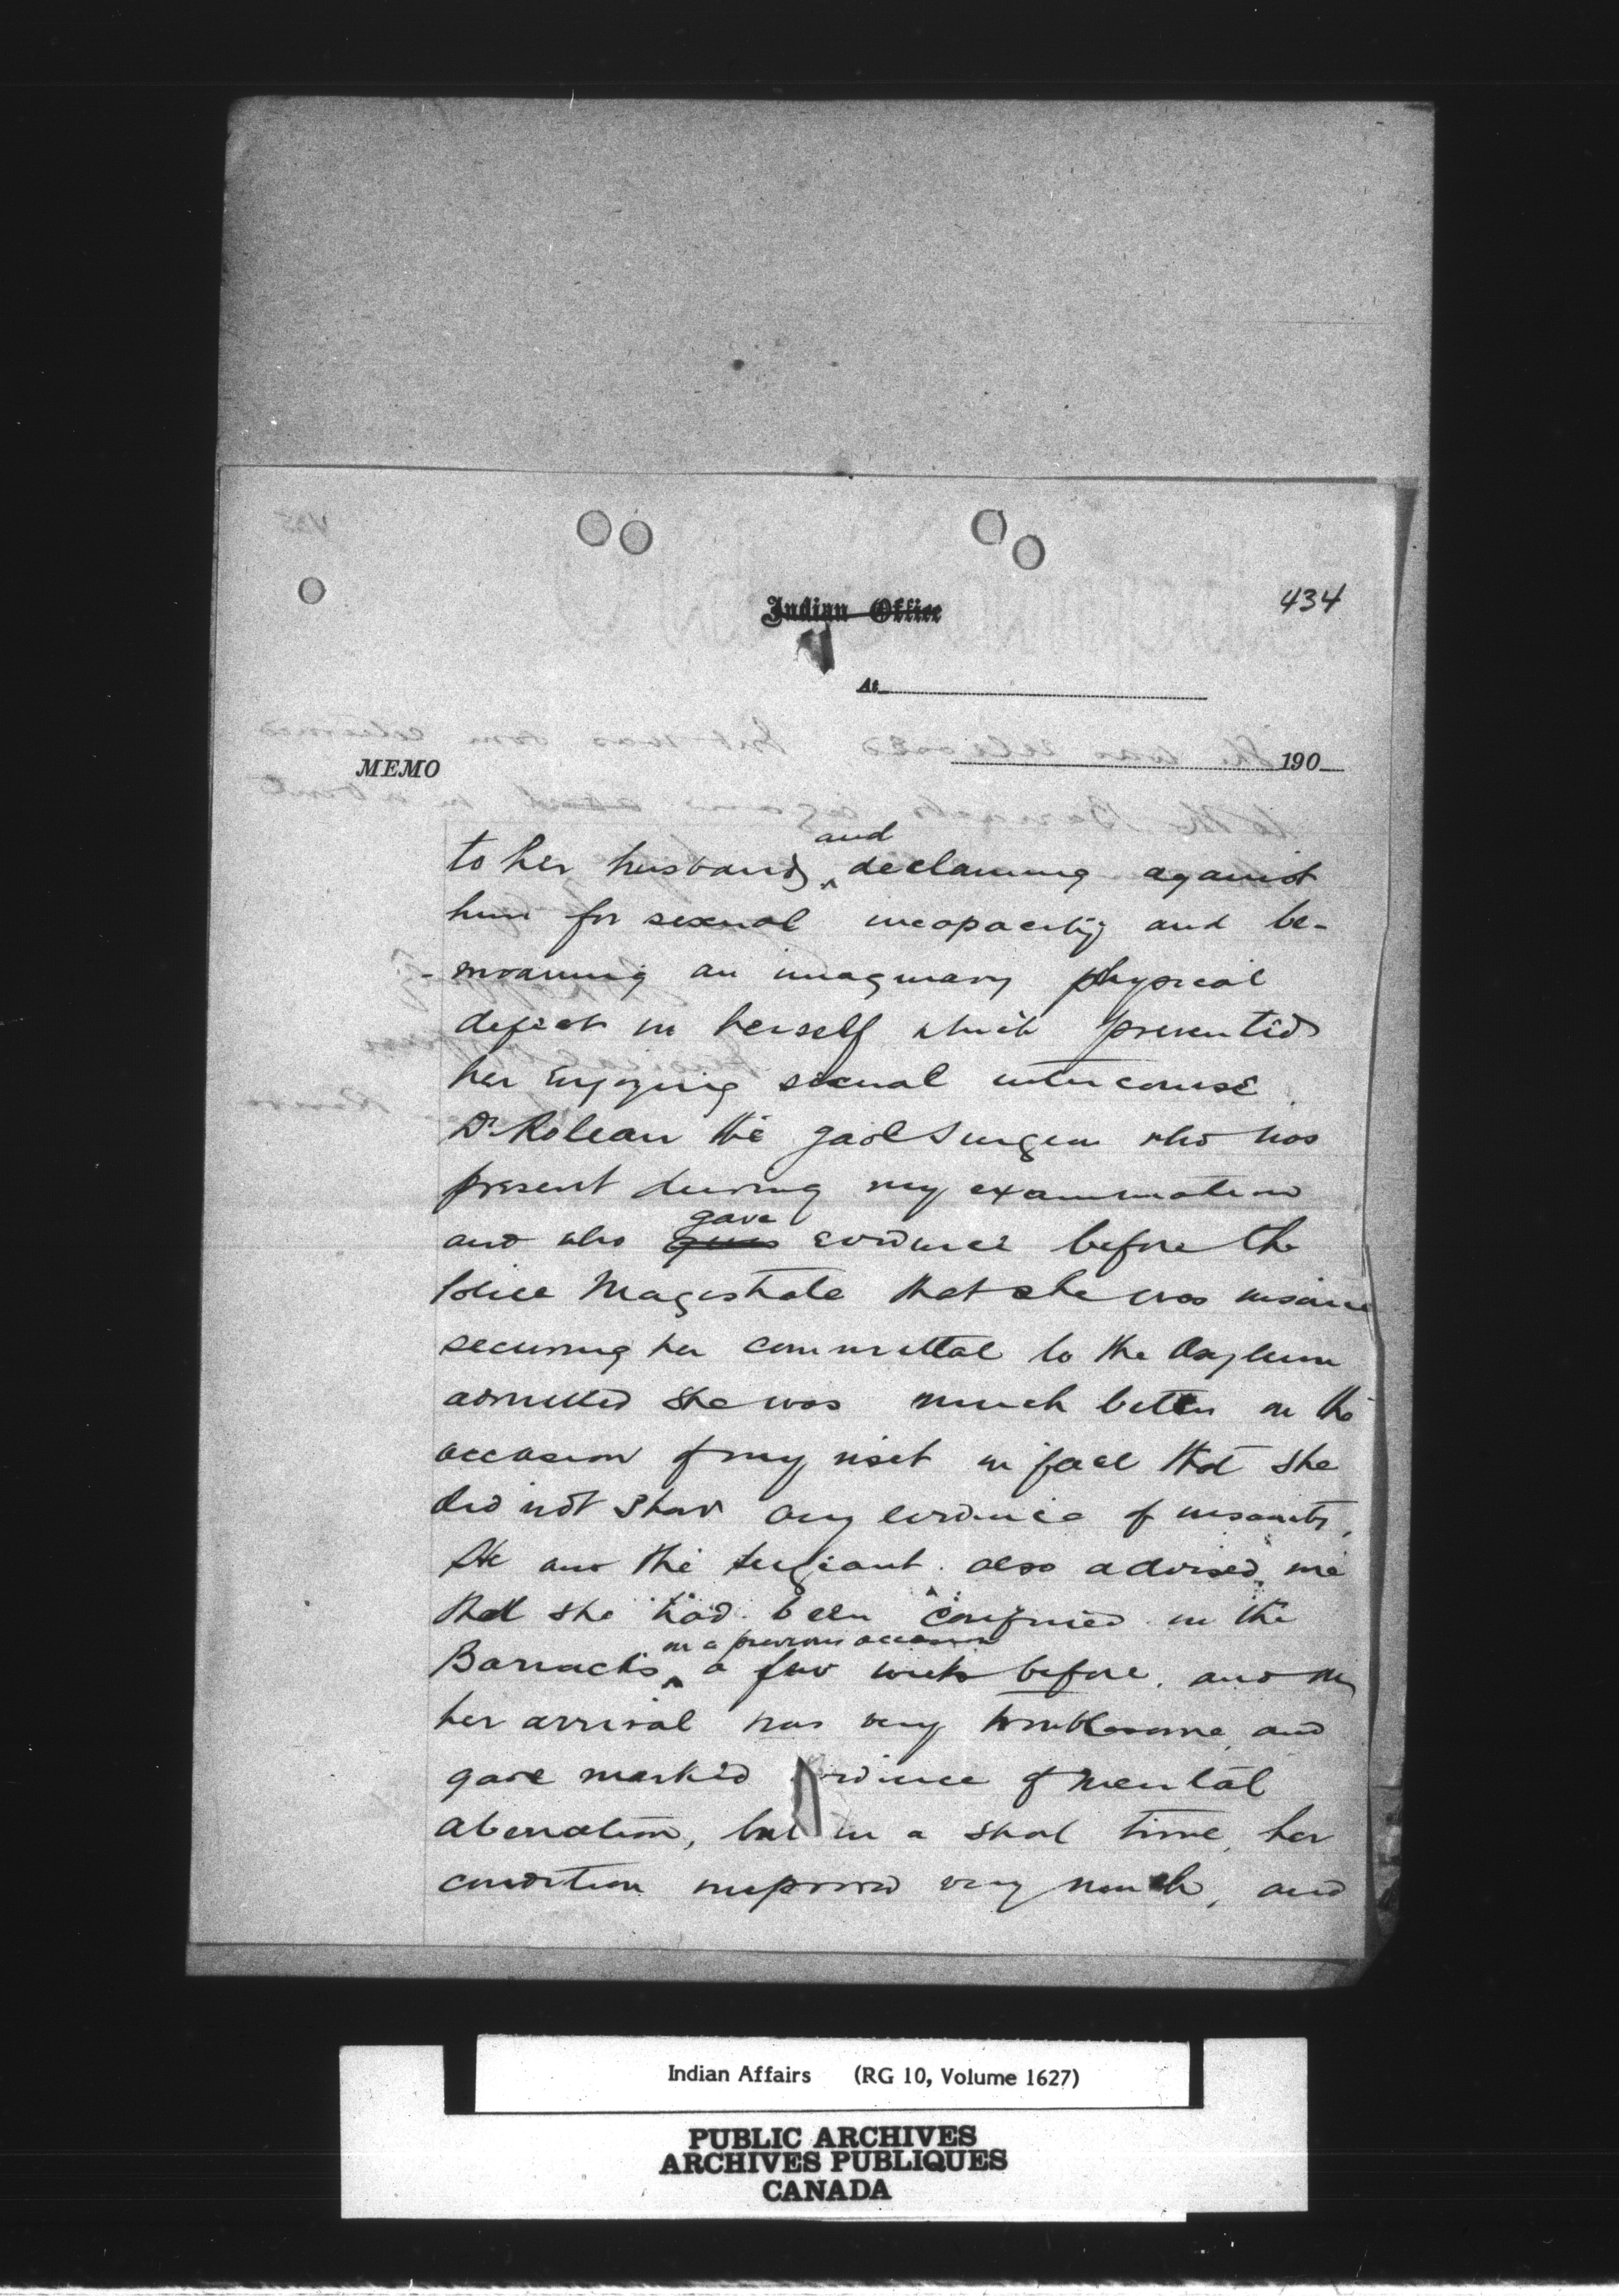 434
Indian Office
At
190
MEMO
and
to her husband, declaiming against
him for sexual incapacity and be-
-moaning an imaginary physical
defect in herself which prevented
her enjoying sexual intercourse.
Dr Roleau the gaol Surgeon who was
present during my examination
gave
and who evidence before the
Police Magistrate that she was insane
securing her committal to the Asylum
admitted she was much better on the
occasion of my visit in fact that she
did not show any evidence of insanity.
He and the sergeant also advised me
that she had been confined in the
on a previous occasion
Barracks a few weeks before, and on
her arrival was very troublesome and
gave marked evidence of mental
aberration, but in a short time, her
condition improved very much, and
Indian Affairs (RG 10, Volume 1627)
PUBLIC ARCHIVES
ARCHIVES PUBLIQUES
CANADA